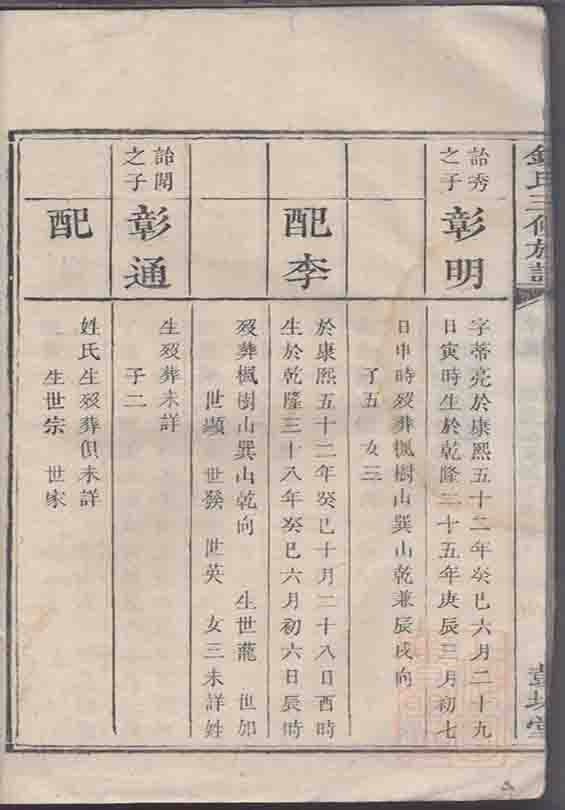 氏三修族譜
詒秀
之子
彰明
字蒂亮於康熙五十二年癸巳六月二十九
日寅時生於乾隆二十五年庚辰三月初七
日申時歿葬楓樹山巽山乾兼辰戌向
子五 女三
配李
於康熙五十二年癸巳十月二十八日酉時
生於乾隆三十八年癸巳六月初六日辰時
歿葬楓樹山巽山乾向 生世龍 世如
世顯 世發 世英 女三未詳姓
詒開
之子
彰通
生歿葬未詳
子二
配
姓氏生歿葬俱未詳
生世宗 世家